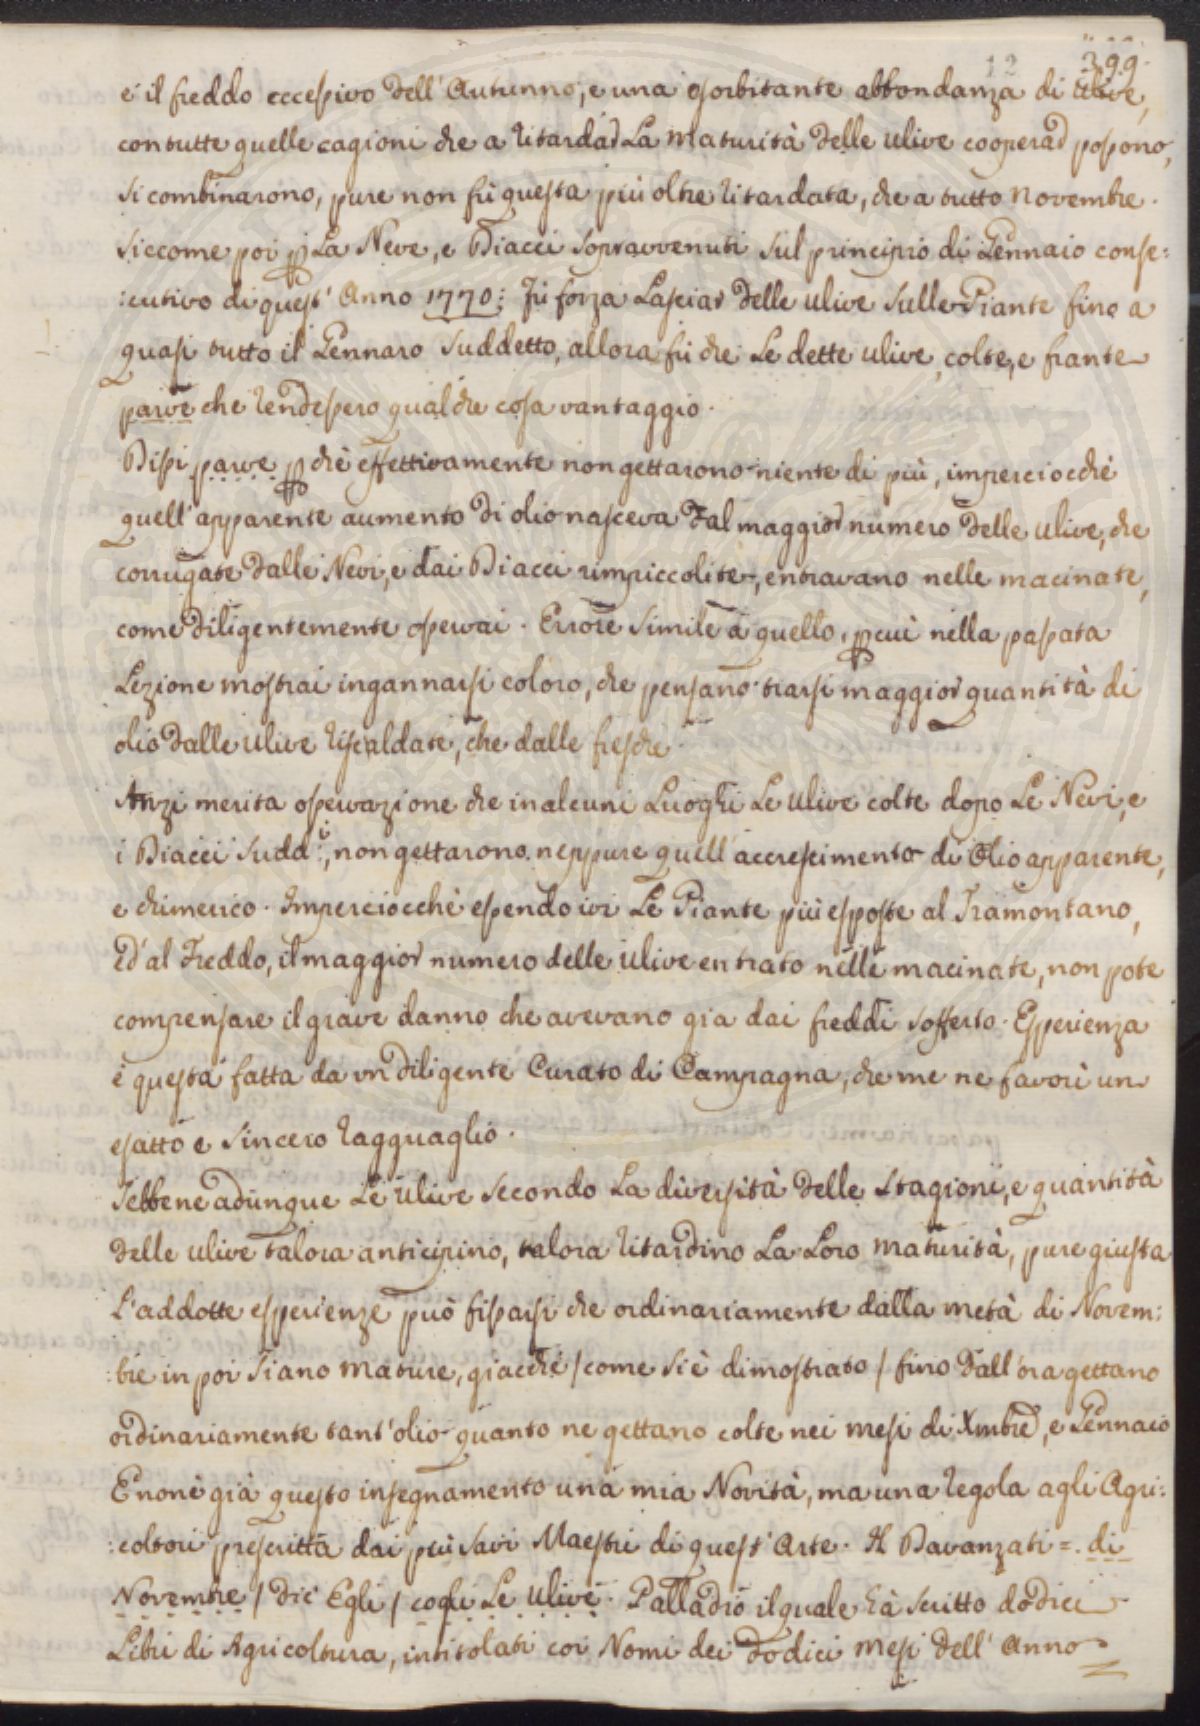 12 399.
e il freddo eccessivo dell' Autunno, e una esorbitante abbondanza di ulive,
con tutte quelle cagioni che a ritardar La maturità delle ulive cooperar possono,
si combinarono, pure non fù questa più oltre ritardata, che a tutto Novembre.
Siccome poi p La Neve, e Diacci sopravvenuti sul principio di Gennaio conse:
:cutivo di quest' Anno 1770: Fù forza Lasciar delle ulive sulle Piante fino a
quasi tutto il Gennaro suddetto, allora fù che Le dette ulive, colte, e frante
parve che rendessero qualche cosa vantaggio.
Dissi parve p chè effettivamente non gettarono niente di più, imperciocchè
quell' apparente aumento di olio nasceva dal maggior numero delle ulive, che
corrugate dalle Nevi, e dai Diacci rimpiccolite, entravano nelle macinate,
come diligentemente osservai. Errore simile a quello, p cui nella passata
Lezione mostrai ingannarsi coloro, che pensano trarsi maggior quantità di
olio dalle ulive riscaldate, che dalle fresche.
Anzi merita osservazione che in alcuni Luoghi Le ulive colte dopo Le Nevi, e
i Diacci sudd.i, non gettarono neppure quell' accrescimento di Olio apparente,
e chimerico. Imperciocchè essendo ivi Le Piante più esposte al Tramontano,
ed al Freddo, il maggior numero delle ulive entrato nelle macinate, non potè
compensare il grave danno che avevano gia dai freddi sofferto. Esperienza
è questa fatta da un diligente Curato di Campagna, che me ne favorì un
esatto e sincero ragguaglio.
Sebbene adunque Le ulive secondo La diversità delle Stagioni, e quantità
delle ulive talora anticipino, talora ritardino La Loro maturità, pure giusta
L'addotte esperienze può fissarsi che ordinariamente dalla metà di Novem:
:bre in poi siano mature, giacchè / come si è dimostrato / fino dall'ora gettano
ordinariamente tant' olio quanto ne gettano colte nei mesi di Xmbre, e Gennaio
E non è già questo insegnamento una mia Novità, ma una regola agli Agri:
:coltori prescritta dai più savi Maestri di quest' Arte. Il Davanzati =. di
Novembre / dic' Egli / cogli Le ulive. Palladio il quale hà scritto dodici
Libri di Agricoltura, intitolati coi Nomi dei dodici mesi dell' Anno